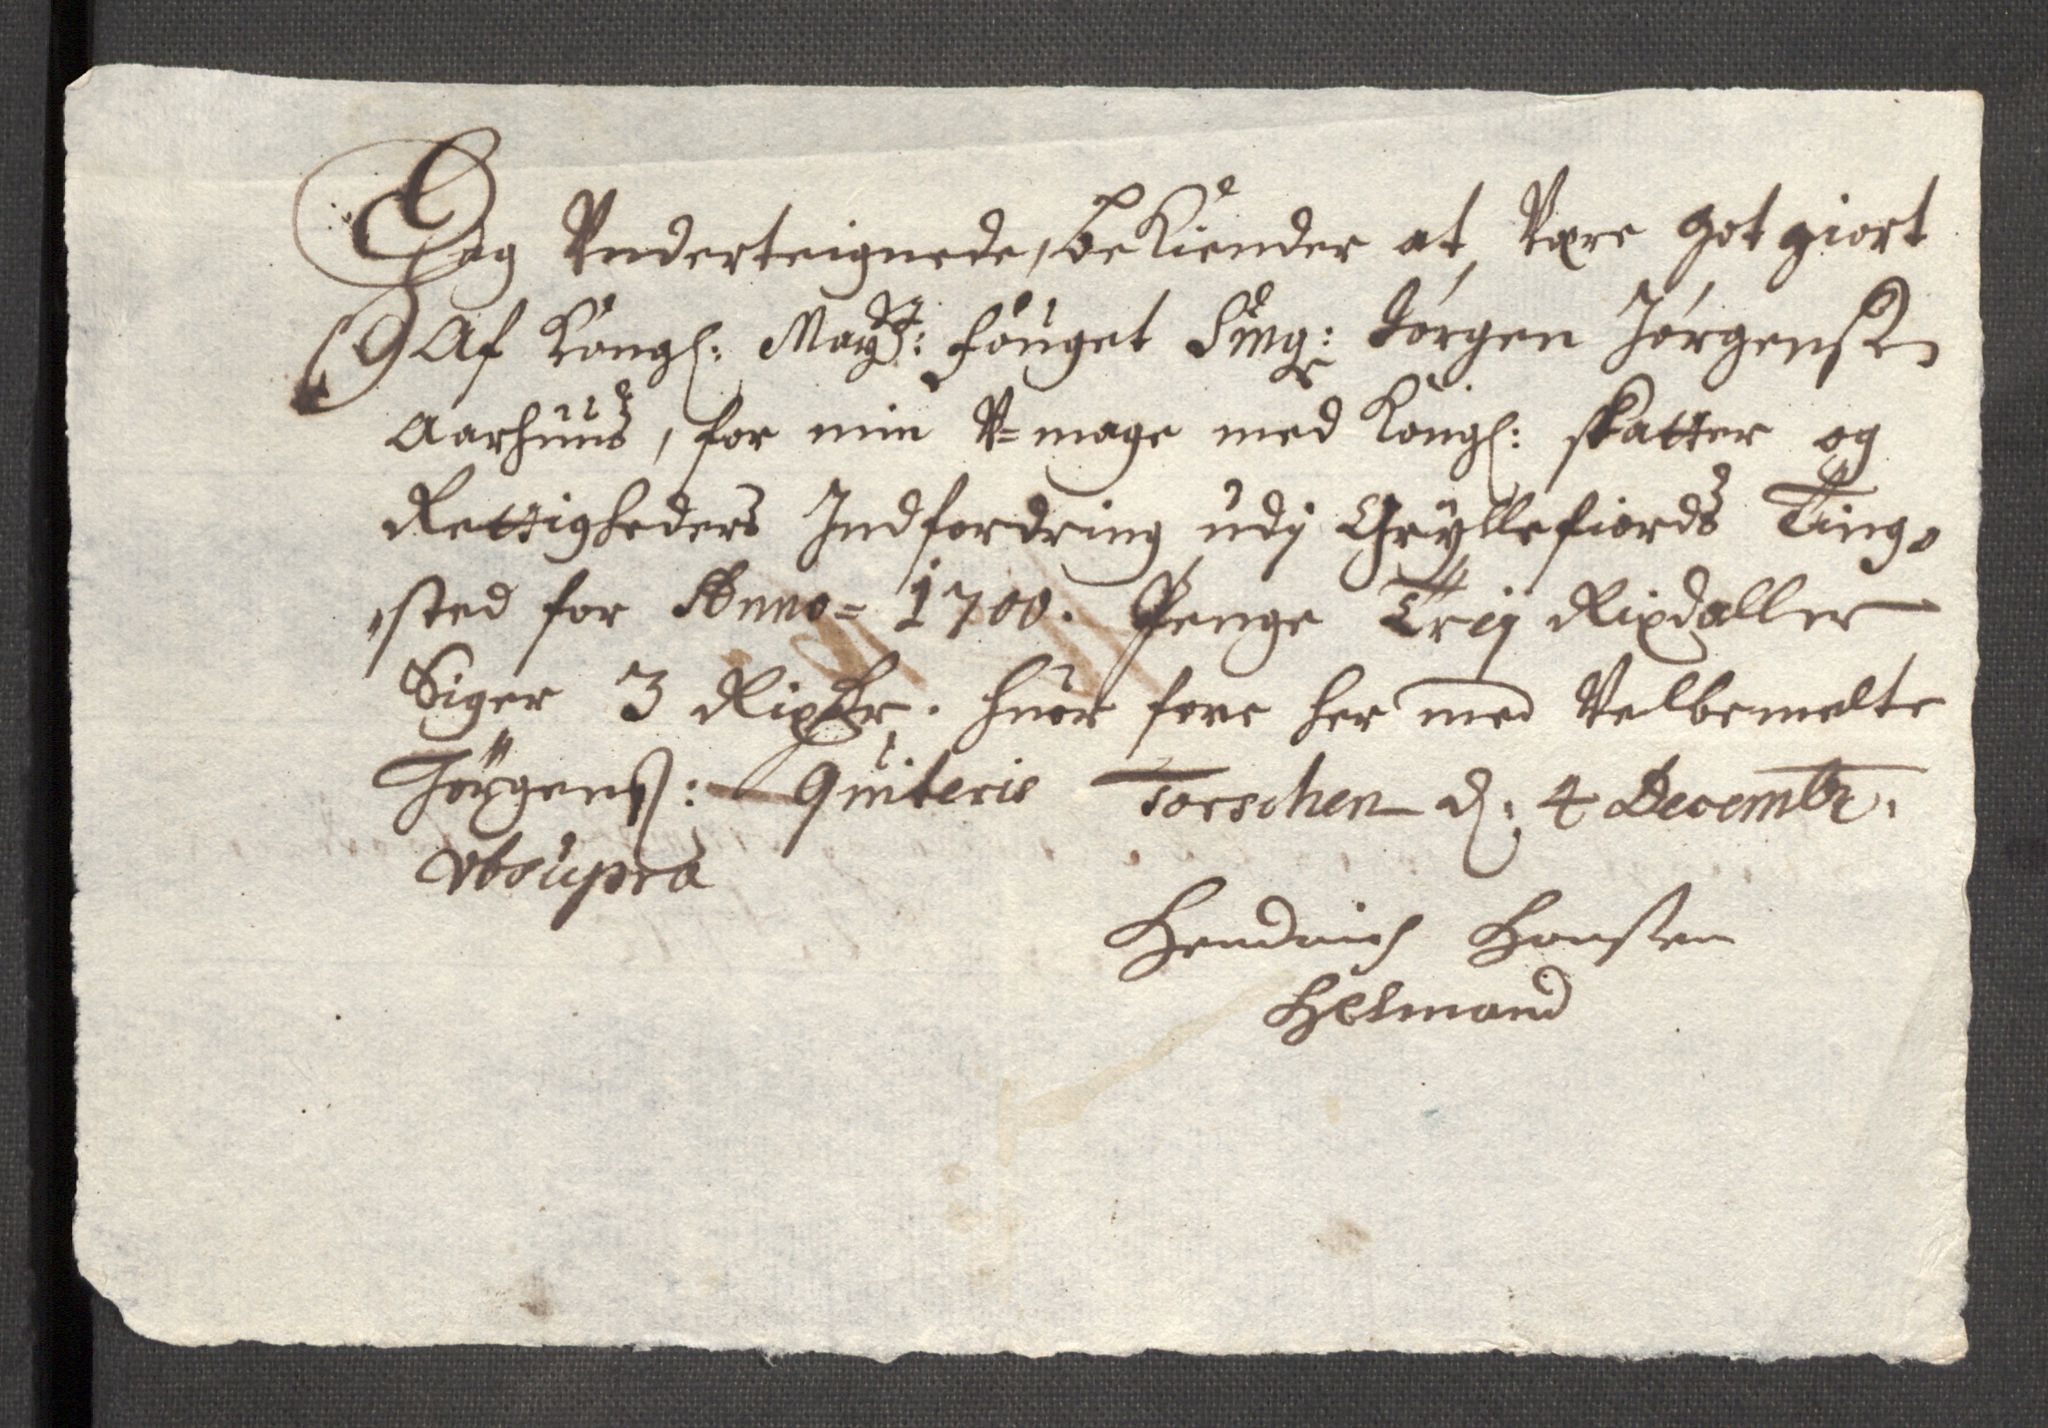 Jeg Underteignede, beKiender at Være got giort
Af Kongl: Mayst: fouget Sing: Jørgen Jørgensøn
Aarhuus, for min U-mage med Kongl: skatter og
Rettigheders Indfordring udj Gryllefiords Ting-
sted for Anno= 1700. Penge Trej Rixdaller
Siger 3 Rixdr. huor fore her med Velbemelte
Jørgenß: quiteris Torschen d: 4 Decembr:
vtsupra
Hendrich Hanßen
Helmand